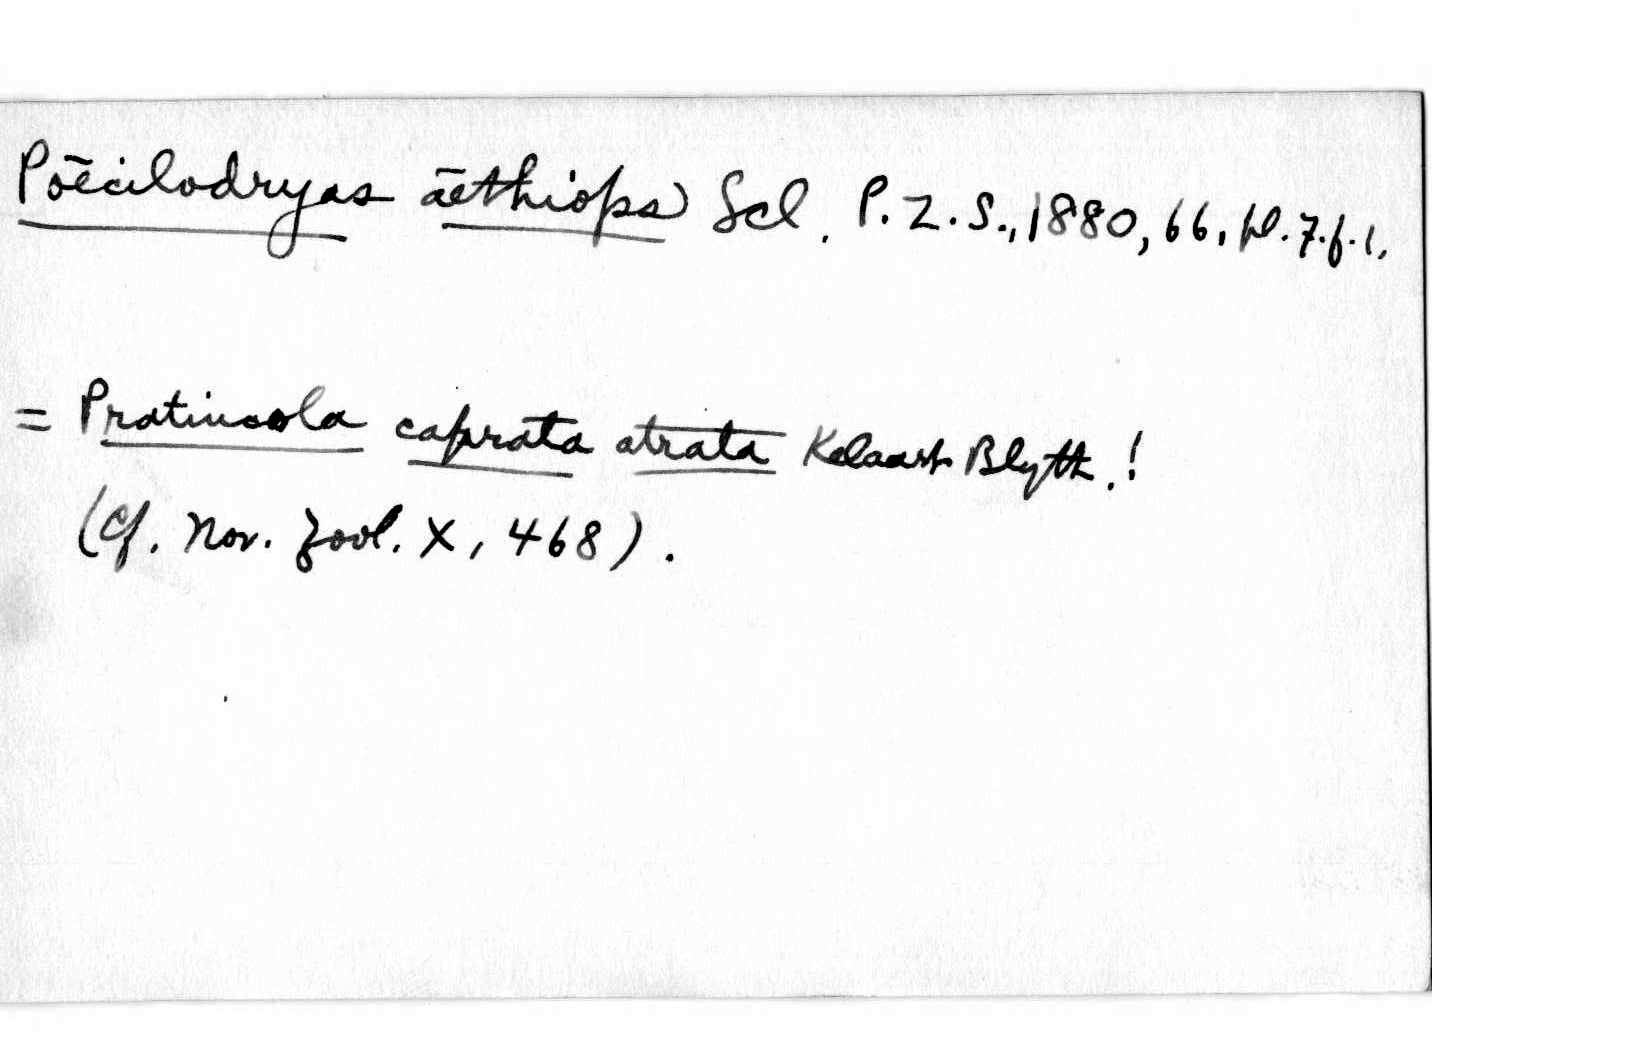 Poecilodryas aethiops Scl. P. Z. S., 1880, 66, pl. 7. f. 1,
= Pratincola caprata atrata Kelaart Blyth.!
(Cf. Nov. Zool. X, 468).